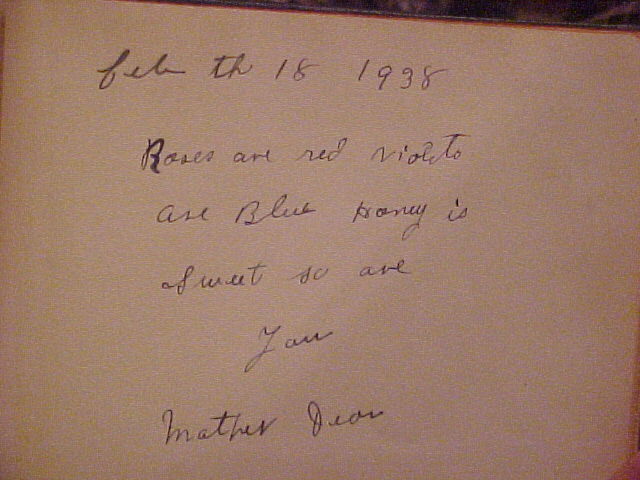 feb th 18 1938
Roses are red violets
are Blue Honey is
Sweet so are
You
Mother Dear